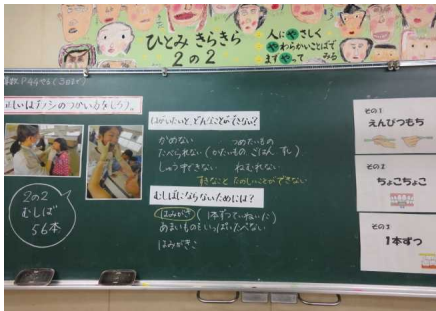 ひとみ きらきら
2の2
人に やさしく
やわらかいことばで
まず やって みる
正しいハブラシのつかい方をしろう。
はがいたいと、どんなことができない?
かめない つめたいもの
たべられない (かたいもの ごはん すし)
しゅう中できない ねむれない
すきなこと たのしいことができない
むしばにならないためには?
はみがき (1本ずつていねいに)
あまいものをいっぱいたべない
はみがきこ
2の2
むしば
56本
その1
えんぴつもち
その2
ちょこちょこ
その3
1本ずつ